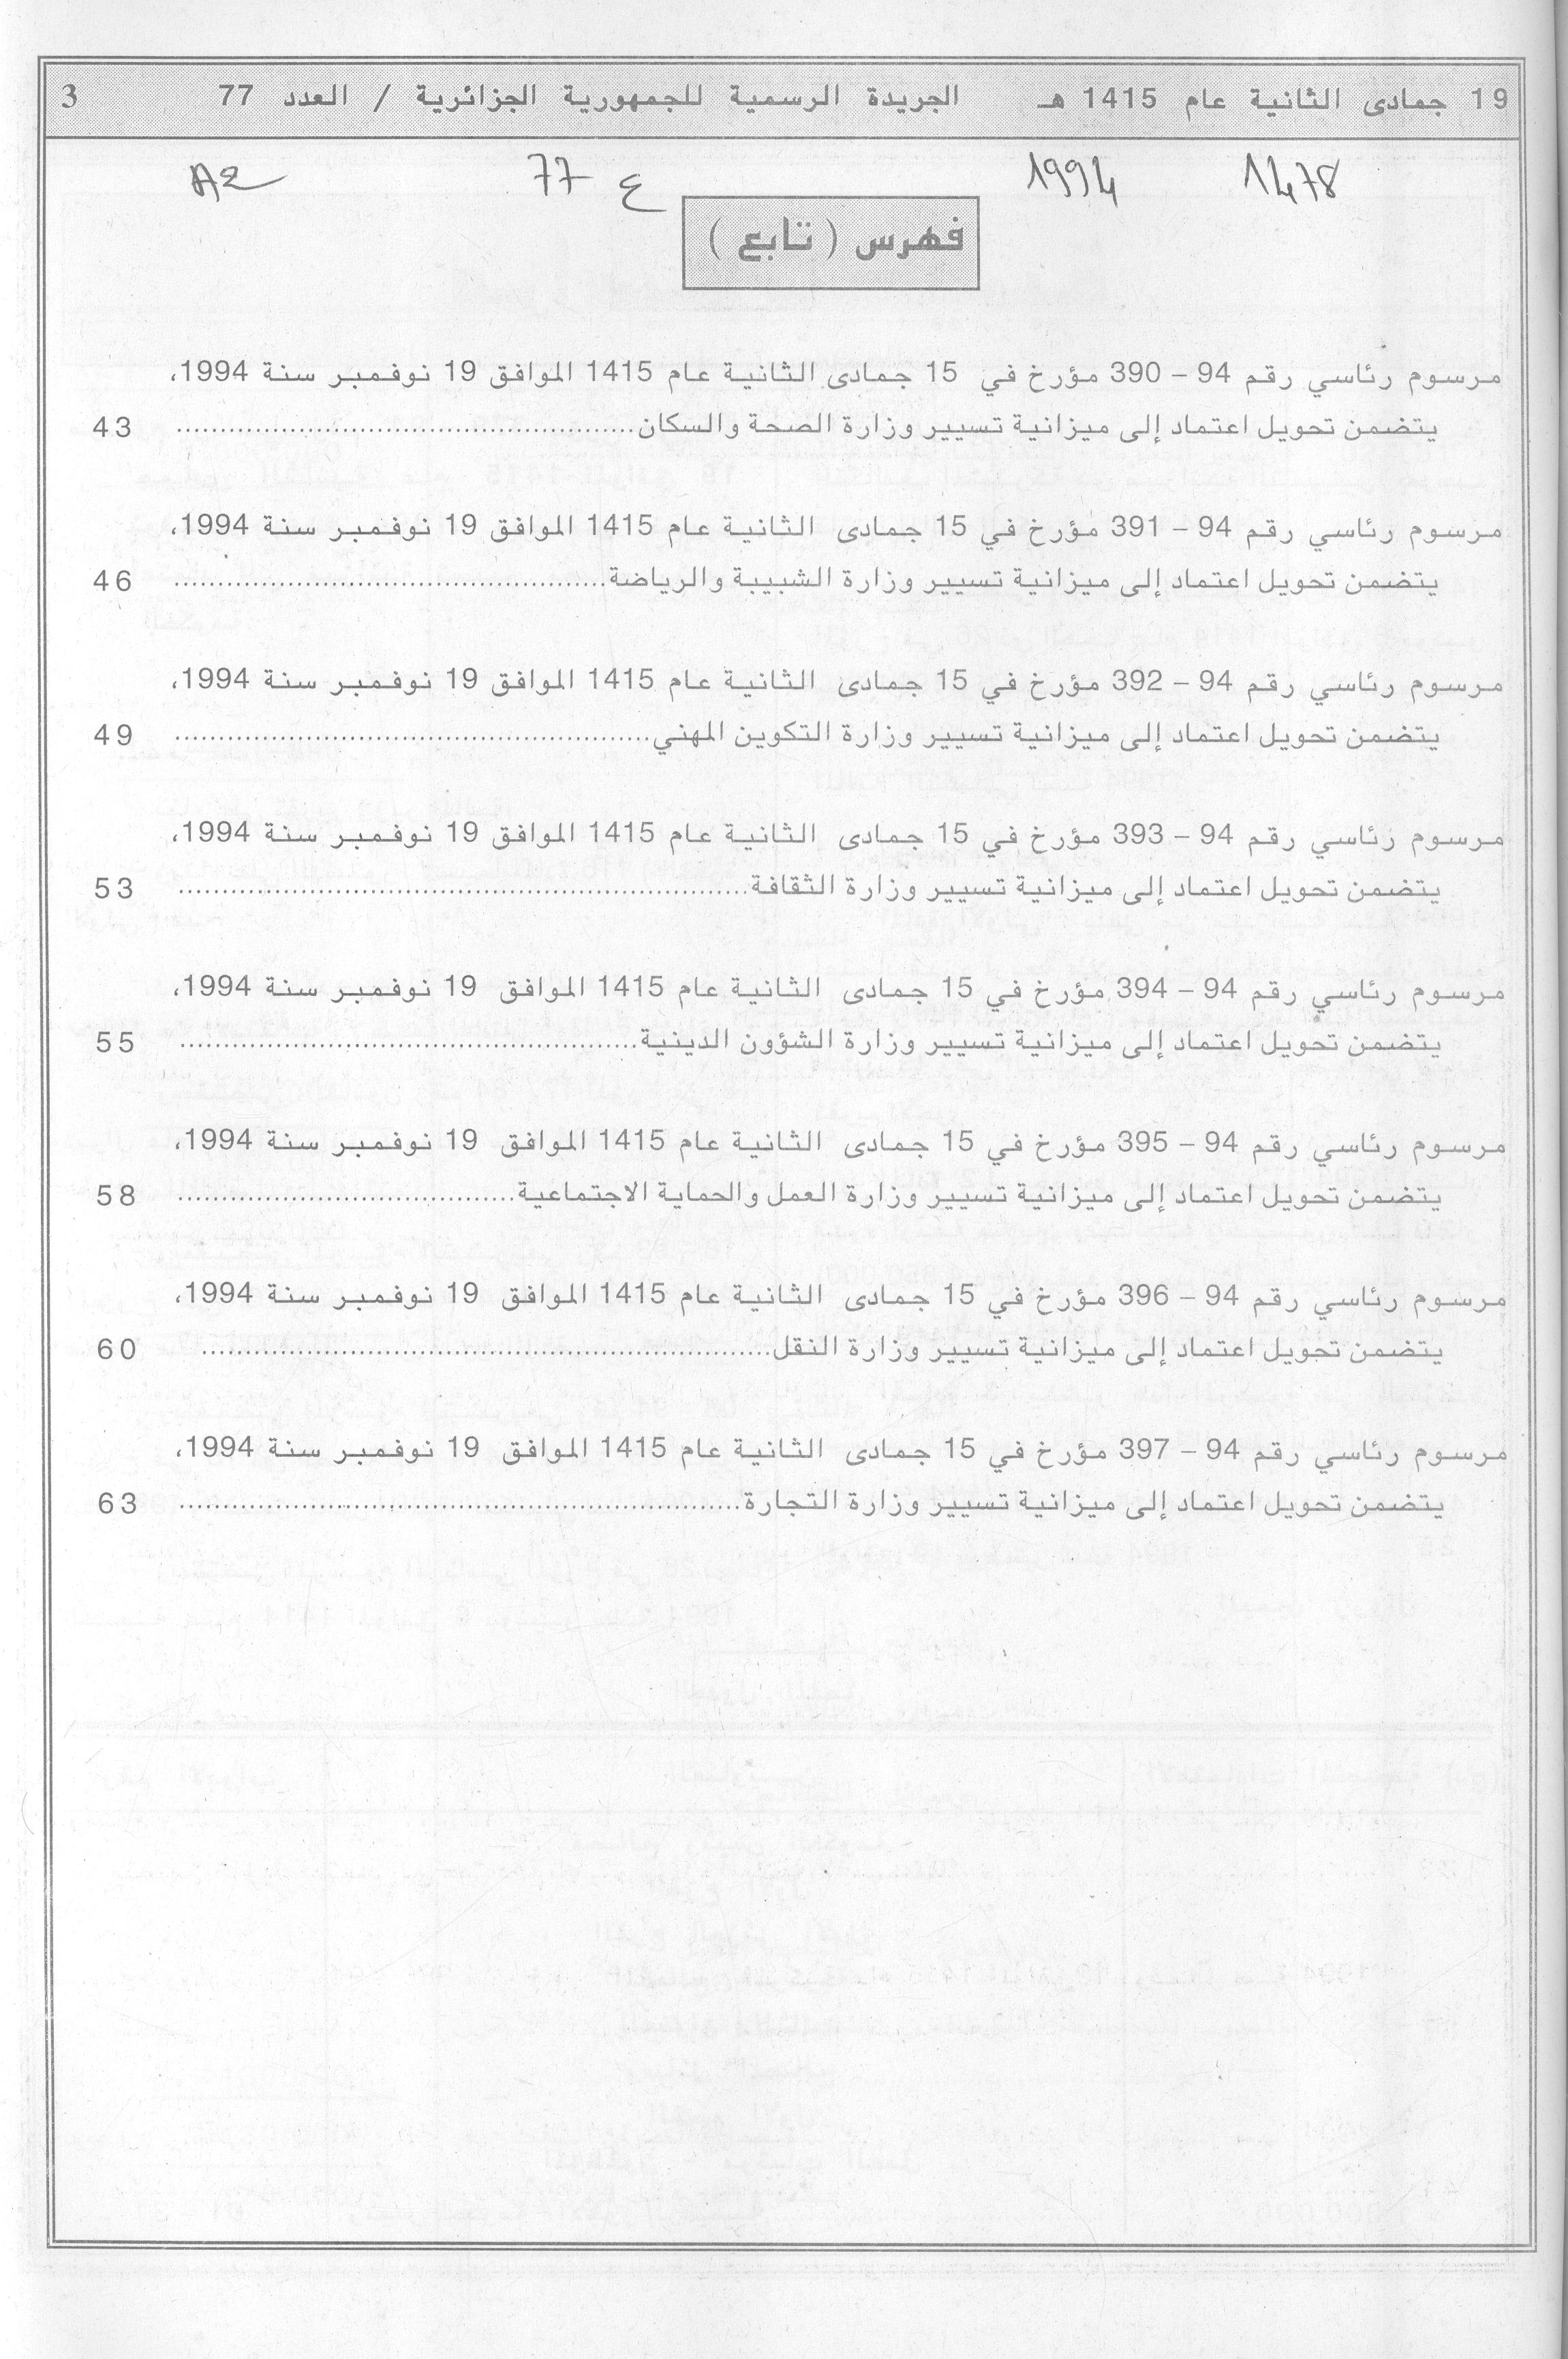 19 جمادى الثانية عام 1415 هـ الجريدة الرسمية للجمهورية الجزائرية / العدد 77 3
1478 1994 ع 77 A2
فهرس (تابع)
مرسوم رئاسي رقم 94 – 390 مؤرخ في 15 جمادى الثانية عام 1415 الموافق 19 نوفمبر سنة 1994،
يتضمن تحويل اعتماد إلى ميزانية تسيير وزارة الصحة والسكان.................................................... 43
مرسوم رئاسي رقم 94 – 391 مؤرخ في 15 جمادى الثانية عام 1415 الموافق 19 نوفمبر سنة 1994،
يتضمن تحويل اعتماد إلى ميزانية تسيير وزارة الشبيبة والرياضة................................................. 46
مرسوم رئاسي رقم 94 – 392 مؤرخ في 15 جمادى الثانية عام 1415 الموافق 19 نوفمبر سنة 1994،
يتضمن تحويل اعتماد إلى ميزانية تسيير وزارة التكوين المهني...................................................... 49
مرسوم رئاسي رقم 94 – 393 مؤرخ في 15 جمادى الثانية عام 1415 الموافق 19 نوفمبر سنة 1994،
يتضمن تحويل اعتماد إلى ميزانية تسيير وزارة الثقافة................................................................. 53
مرسوم رئاسي رقم 94 – 394 مؤرخ في 15 جمادى الثانية عام 1415 الموافق 19 نوفمبر سنة 1994،
يتضمن تحويل اعتماد إلى ميزانية تسيير وزارة الشؤون الدينية.................................................... 55
مرسوم رئاسي رقم 94 – 395 مؤرخ في 15 جمادى الثانية عام 1415 الموافق 19 نوفمبر سنة 1994،
يتضمن تحويل اعتماد إلى ميزانية تسيير وزارة العمل والحماية الاجتماعية...................................... 58
مرسوم رئاسي رقم 94 – 396 مؤرخ في 15 جمادى الثانية عام 1415 الموافق 19 نوفمبر سنة 1994،
يتضمن تحويل اعتماد إلى ميزانية تسيير وزارة النقل................................................................. 60
مرسوم رئاسي رقم 94 – 397 مؤرخ في 15 جمادى الثانية عام 1415 الموافق 19 نوفمبر سنة 1994،
يتضمن تحويل اعتماد إلى ميزانية تسيير وزارة التجارة................................................................ 63